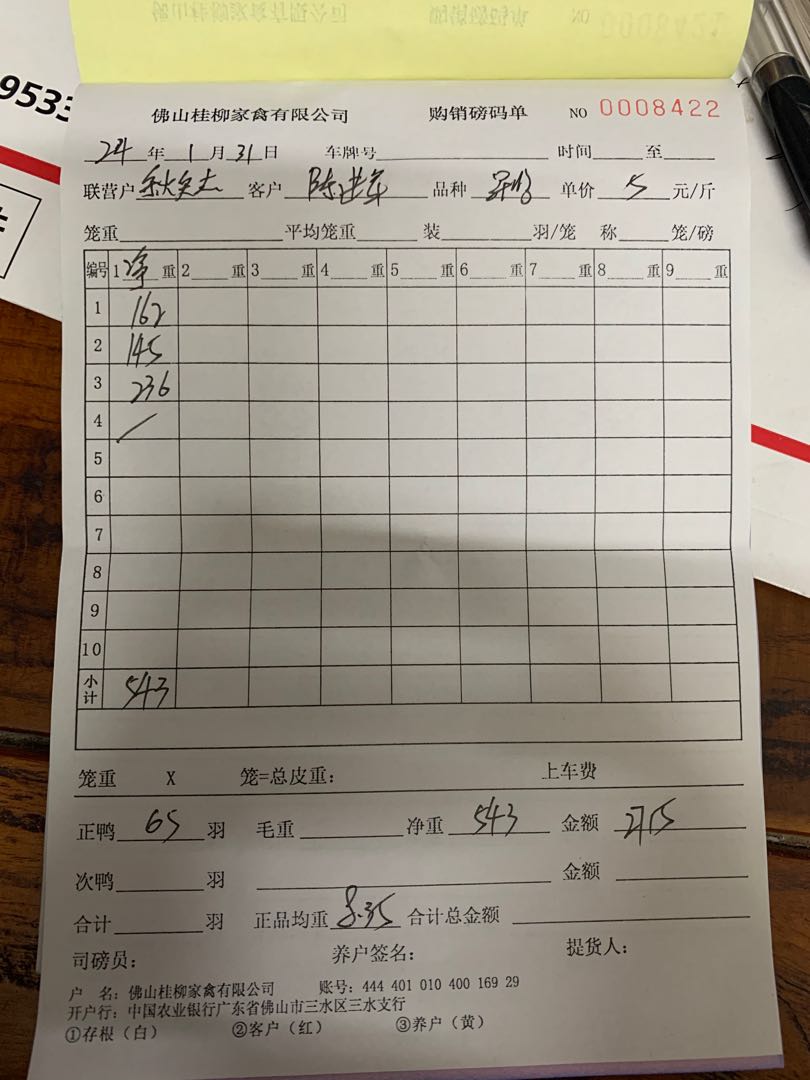 9533
佛山桂柳家禽有限公司 购销磅码单 NO 0008422
24年1月31日 车牌号 时间 至
联营户 客户 陈进年 品种 单价 5 元/斤
笼重 平均笼重 装 羽/笼 称 笼/磅
编号 1 净 重 2 重 3 重 4 重 5 重 6 重 7 重 8 重 9 重
1 162
2 145
3 236
4 /
5
6
7
8
9
10
小计 543
笼重 X 笼=总皮重: 上车费
正鸭 65 羽 毛重 净重 543 金额 2715
次鸭 羽 金额
合计 羽 正品均重 8.35 合计总金额
司磅员: 养户签名: 提货人:
户 名: 佛山桂柳家禽有限公司 账号: 444 401 010 400 169 29
开户行: 中国农业银行广东省佛山市三水区三水支行
①存根(白) ②客户(红) ③养户(黄)